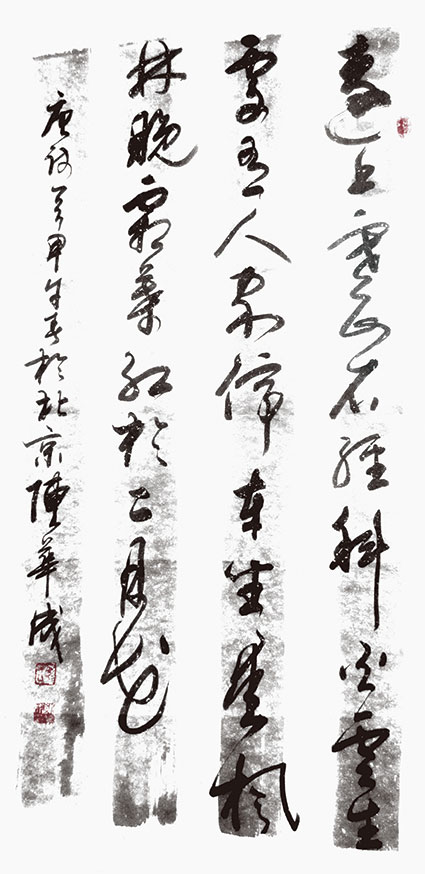 遠上寒山石經斜白雲生
處有人家停車坐愛楓
林晚霜葉紅於二月花
唐詩一首甲午春於北京陳華成